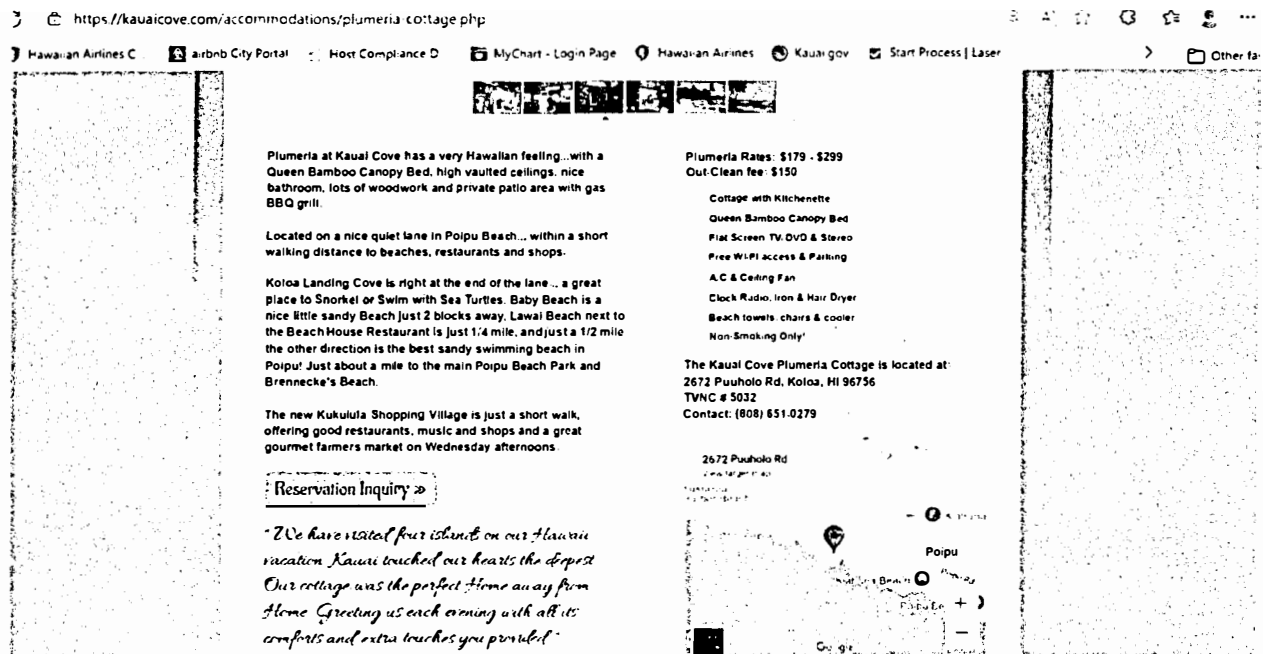 https://kauaicove.com/accommodations/plumeria-cottage.php
Hawaiian Airlines C
airbnb City Portal
Host Compliance D
MyChart - Login Page
Hawaiian Airlines
Kauai.gov
Start Process | Laser
Other fa
Plumeria at Kauai Cove has a very Hawaiian feeling...with a
Queen Bamboo Canopy Bed, high vaulted ceilings, nice
bathroom, lots of woodwork and private patio area with gas
BBQ grill.
Located on a nice quiet lane in Poipu Beach... within a short
walking distance to beaches, restaurants and shops.
Koloa Landing Cove is right at the end of the lane... a great
place to Snorkel or Swim with Sea Turtles. Baby Beach is a
nice little sandy Beach just 2 blocks away, Lawai Beach next to
the Beach House Restaurant is just 1/4 mile, and just a 1/2 mile
the other direction is the best sandy swimming beach in
Poipu! Just about a mile to the main Poipu Beach Park and
Brennecke's Beach.
The new Kukuiula Shopping Village is just a short walk,
offering good restaurants, music and shops and a great
gourmet farmers market on Wednesday afternoons.
Reservation Inquiry »
"We have visited four islands on our Hawaii
vacation Kauai touched our hearts the deepest
Our cottage was the perfect Home away from
Home Greeting us each evening with all its
comforts and extra touches you provided"
Plumeria Rates: $179 - $299
Out-Clean fee: $150
Cottage with Kitchenette
Queen Bamboo Canopy Bed
Flat Screen TV, DVD & Stereo
Free Wi-Fi access & Parking
A.C & Ceiling Fan
Clock Radio, Iron & Hair Dryer
Beach towels, chairs & cooler
Non-Smoking Only!
The Kauai Cove Plumeria Cottage is located at:
2672 Puuholo Rd, Koloa, HI 96756
TVNC # 5032
Contact: (808) 651-0279
2672 Puuholo Rd
View larger map
Poipu
Beach
Google